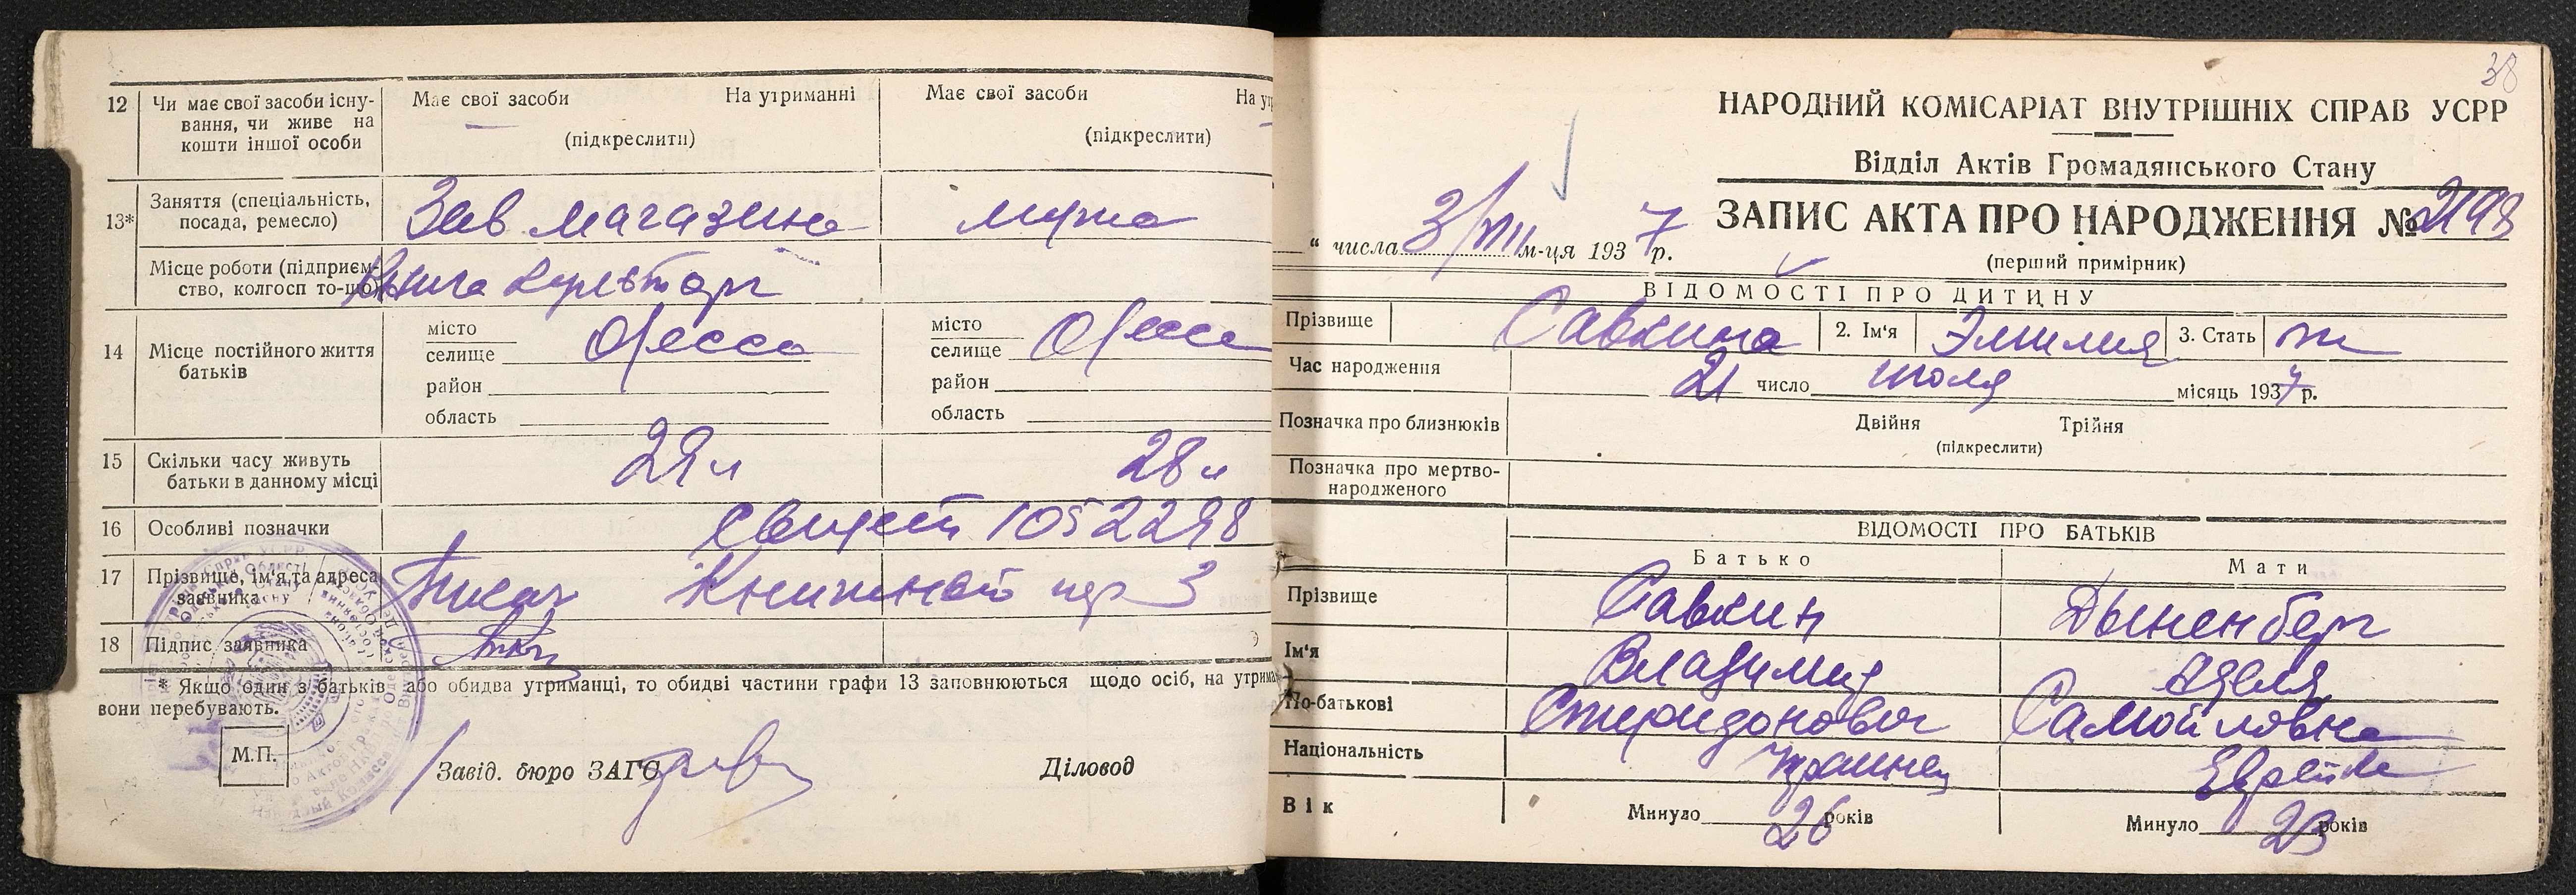 12 Чи має свої засоби існу-
вання, чи живе на
кошти іншої особи
Має свої засоби На утриманні
(підкреслити)
Має свої засоби На ут
(підкреслити)
13* Заняття (спеціальність,
посада, ремесло)
Зав магазина
мужа
Місце роботи (підприєм-
ство, колгосп то-що)
Книга культорг
14 Місце постійного життя
батьків
місто
селище Одесса
район
область
місто
селище Одесс
район
область
15 Скільки часу живуть
батьки в данному місці
29 л
28 л
16 Особливі позначки
1052298
17 Прізвище, ім'я та адреса
заявника
Книжный пер 3
18 Підпис заявника
* Якщо один з батьків або обидва утриманці, то обидві частини графи 13 заповнюються щодо осіб, на утрима
вони перебувають.
М.П.
Завід. бюро ЗАГС
Діловод
38
НАРОДНИЙ КОМІСАРІАТ ВНУТРІШНІХ СПРАВ УСРР
Відділ Актів Громадянського Стану
ЗАПИС АКТА ПРО НАРОДЖЕННЯ № 2198
“ числа 3/VIII м-ця 1937 р.
(перший примірник)
ВІДОМОСТІ ПРО ДИТИНУ
Прізвище Савкина 2. Ім'я Эмилия 3. Стать ж
Час народження 21 число июля місяць 1937 р.
Позначка про близнюків Двійня Трійня
(підкреслити)
Позначка про мертво-
народженого
ВІДОМОСТІ ПРО БАТЬКІВ
Батько Мати
Прізвище Савкин Дыненберг
Ім'я Владимир Адель
По-батькові Спиридонович Самойловна
Національність Украинец Еврейка
Вік Минуло 26 років Минуло 23 років